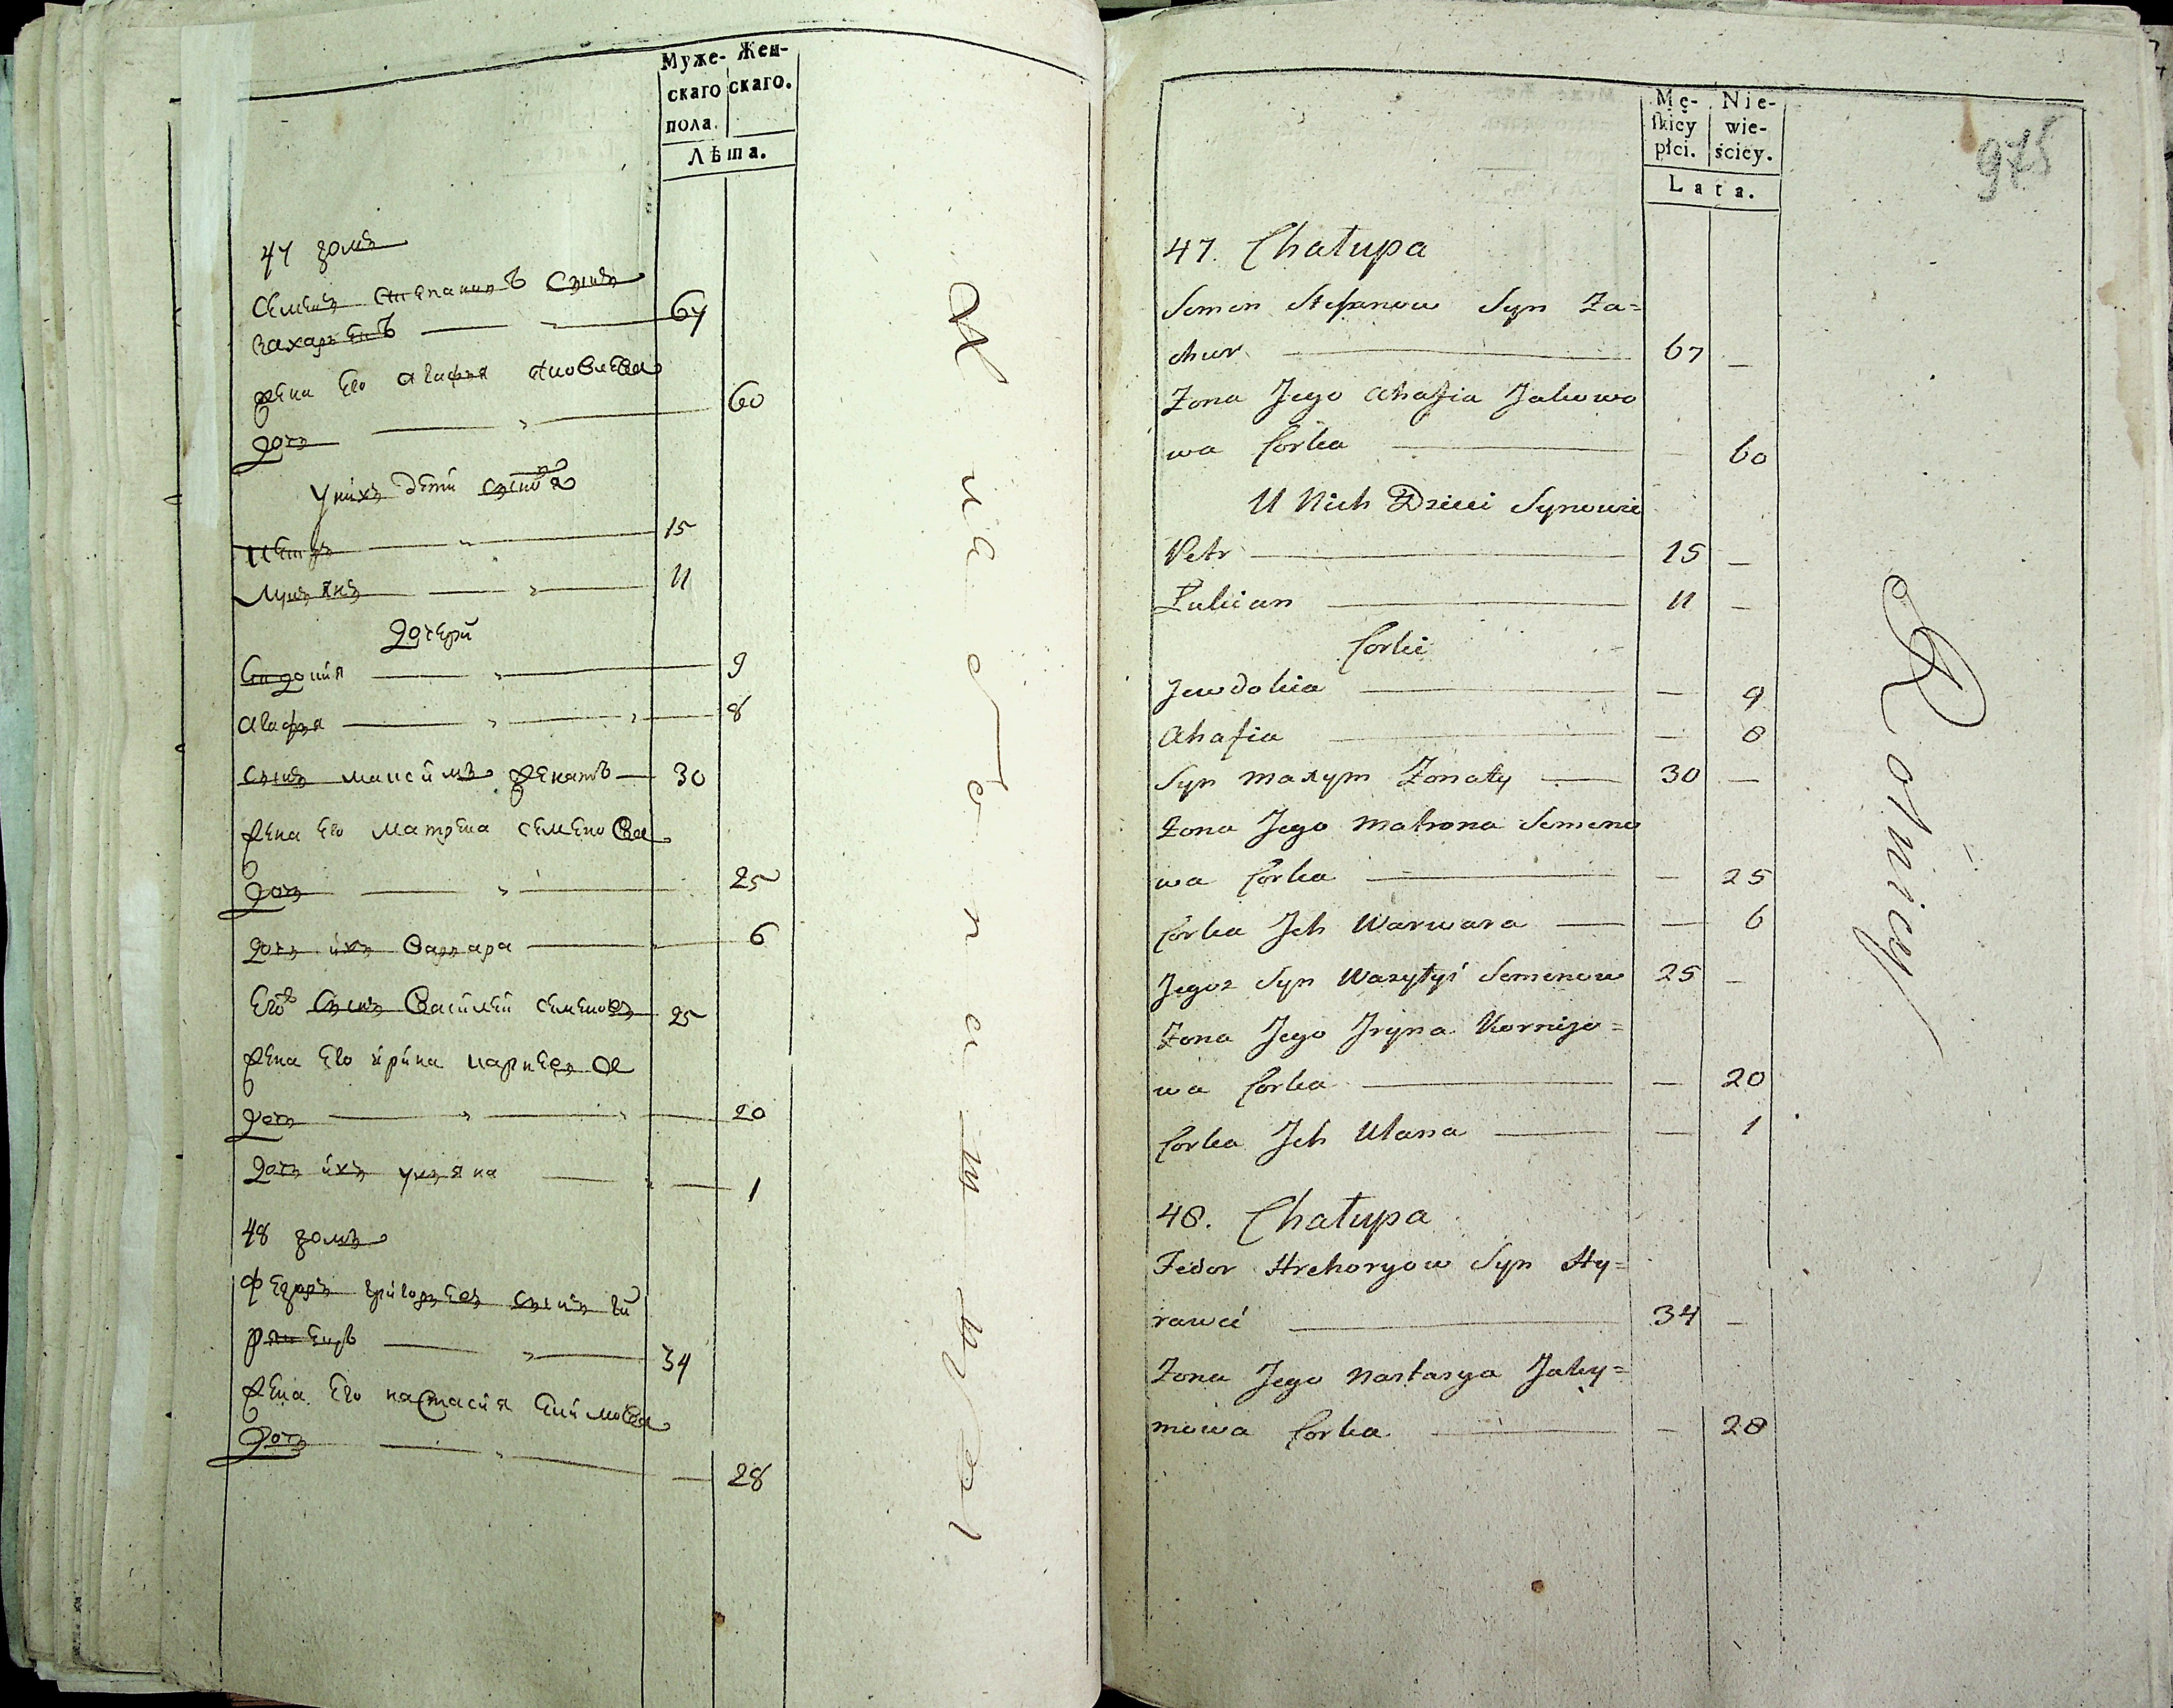 Муже-
скаго
пола.
Жен-
скаго.
Лѣта.
47 домъ
Семенъ Степановъ Сынъ
Захаревъ 67
жена Его Агафья Яковлева
дочь 60
У нихъ дети сыновя
Петръ 15
Лукьянъ 11
Дочери
Агафья 8
сынъ максимъ женатъ 30
жена Его матрена семенова
дочь 25
дочь ихъ Варвара 6
Его Сынъ Василей семеновъ 25
жена Его ирина карнеева
дочь 20
дочь ихъ ульяна 1
48 домъ
Федоръ григорьевъ сынъ
34
жена Его настасия екимова
дочь 28
Хлебопашцы
Mę-
skiey
płci.
Nie-
wie-
ściey.
Lata.
975
47. Chałupa
Semen Stefanow Syn Za=
char 67 –
Żona Jego Ahafia Jakowo
wa Corka – 60
U Nich Dzieci Synowie
Petr 15 –
Łukian 11 –
Corki
Jewdokia – 9
Ahafia – 8
Syn Maxym Żonaty 30 –
Żona Jego Matrona Semeno
wa Corka – 25
Corka Jch Warwara – 6
Jegoż Syn Wasyłyi Semenow 25 –
Żona Jego Jryna Kornijo=
wa Corka – 20
Corka Jch Ulana – 1
48. Chałupa
Fedor Hrehoryow Syn Hy=
rawci 34 –
Żona Jego Nastasya Jaky=
mowa Corka – 28
Rolnicy